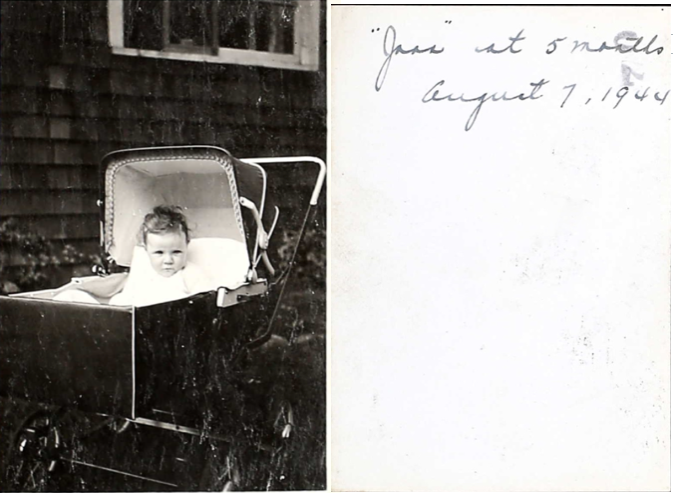 "Joan" at 5 months
August 7, 1944